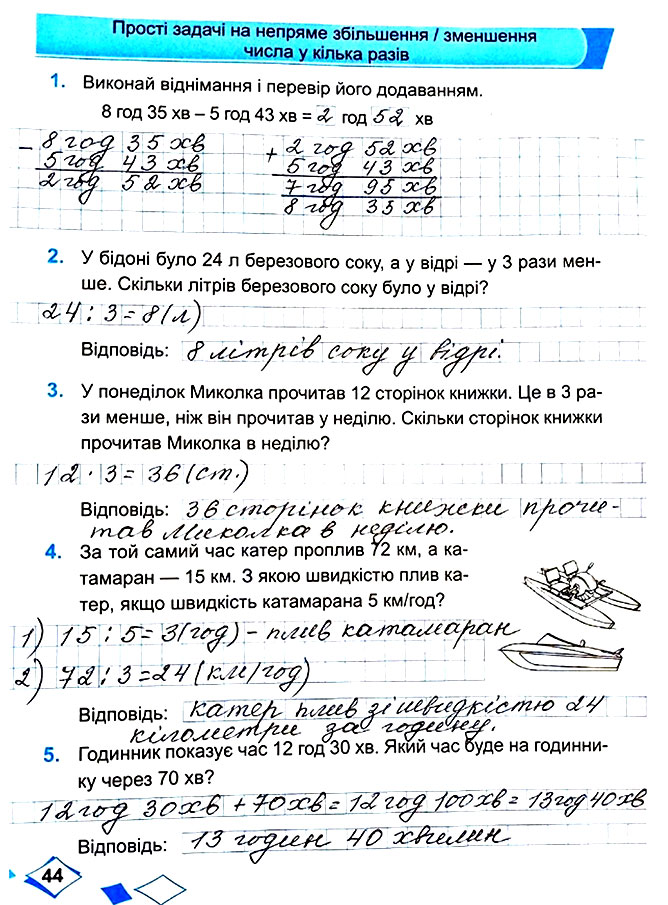 Прості задачі на непряме збільшення / зменшення
числа у кілька разів
1. Виконай віднімання і перевір його додаванням.
8 год 35 хв – 5 год 43 хв = 2 год 52 хв
– 8 год 35 хв + 2 год 52 хв
5 год 43 хв 5 год 43 хв
2 год 52 хв 7 год 95 хв
8 год 35 хв
2. У бідоні було 24 л березового соку, а у відрі — у 3 рази мен-
ше. Скільки літрів березового соку було у відрі?
24 : 3 = 8 (л)
Відповідь: 8 літрів соку у відрі.
3. У понеділок Миколка прочитав 12 сторінок книжки. Це в 3 ра-
зи менше, ніж він прочитав у неділю. Скільки сторінок книжки
прочитав Миколка в неділю?
12 · 3 = 36 (ст.)
Відповідь: 36 сторінок книжки прочи-
тав Миколка в неділю.
4. За той самий час катер проплив 72 км, а ка-
тамаран — 15 км. З якою швидкістю плив ка-
тер, якщо швидкість катамарана 5 км/год?
1) 15 : 5 = 3 (год) – плив катамаран
2) 72 : 3 = 24 (км/год)
Відповідь: катер плив зі швидкістю 24
кілометри за годину.
5. Годинник показує час 12 год 30 хв. Який час буде на годинни-
ку через 70 хв?
12 год 30 хв + 70 хв = 12 год 100 хв = 13 год 40 хв
Відповідь: 13 годин 40 хвилин
44